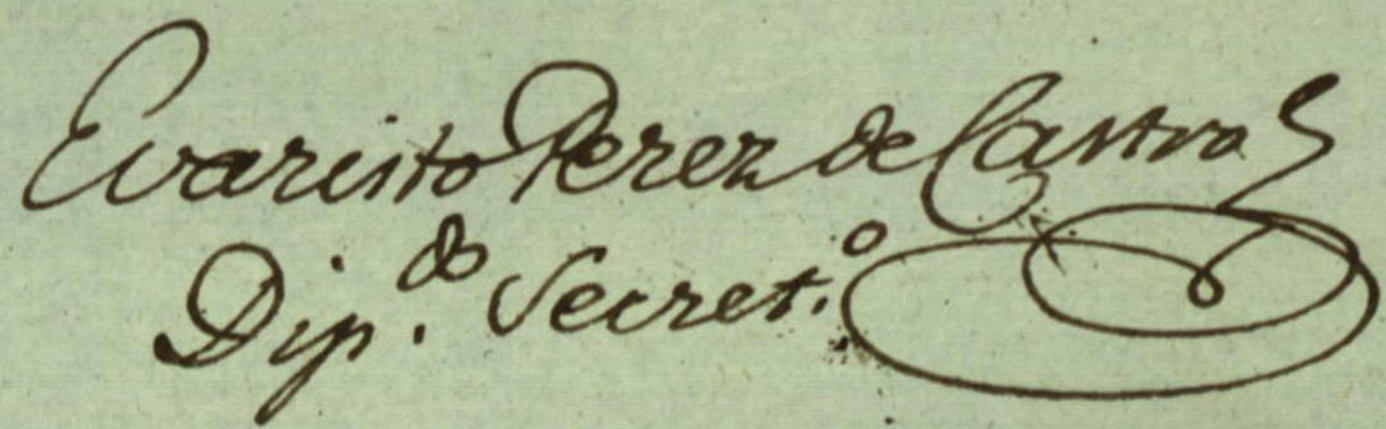 Evaristo Perez de Castro
Dip.do Secret.o